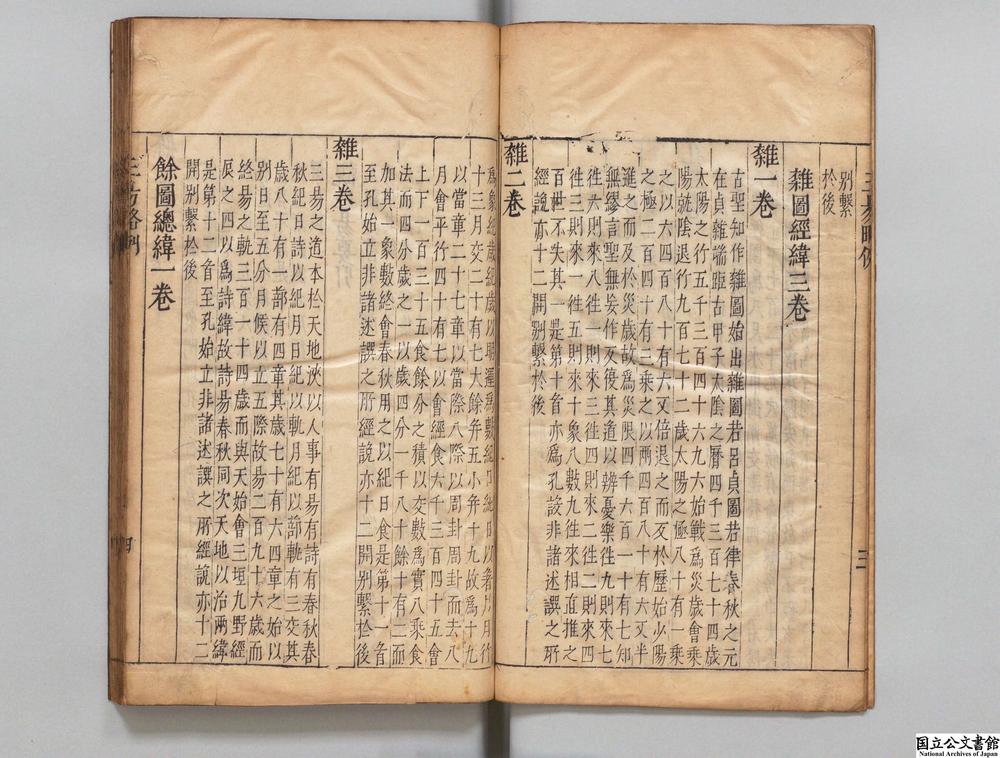 別繫
於後
雜圖經緯三卷
雜一卷
古聖知作雜圖始出雜圖若呂貞圖若律春秋之元
在貞雜端距古甲子太陰之曆四千三百七十四歲
太陽之行五千三百四十六九六始戰爲災歲會乘
陽就陰退行九百七十二歲太陽之極八十有一乘
之以六四百八十有六又倍退之而反於歷始少陽
之極二百四十有三乘之以兩四百八十有六又半
進之而及於災歲故爲災限四千六百一十有七知
無繆言聖無妄作反復其道以辨憂樂徃九則來七
徃六則來八徃一則來三徃四則來二徃二則來四
徃三則來一徃五則來十象八數九徃來相直推之
百世不失其一是第十首亦爲孔設非諸述譔之所
經說亦十二開別繫於後
雜二卷
十三月交二十有七大餘弁五小弁十九故爲十九
以當章二十七章以當際八際以周卦周卦而去八
月會平行四十有七以會經食六千三百四十五會
上下一百三十五食餘分之積以交數爲實八乘食
法而四分歲之一以歲四分一千八十餘十有二而
加其一象數終會春秋用之以紀日食是第十一首
至孔始立非諸述譔之所經說亦十二開別繫於後
雜三卷
三易之道本於天地浹以人事有易有詩有春秋春
秋紀日詩以紀月日紀以軌月紀以蔀軌有三交其
歲八十有一蔀有四章其歲七十有六四章之始以
別日至五分月候以立五際故易二百九十六歲而
終易之軌三百一十四歲而與天始會三垣九野經
辰之四以爲詩緯故詩易春秋同次天地以治兩緯
是第十二音至孔始立非諸述譔之所經說亦十二
開別繫於後
餘圖總緯一卷